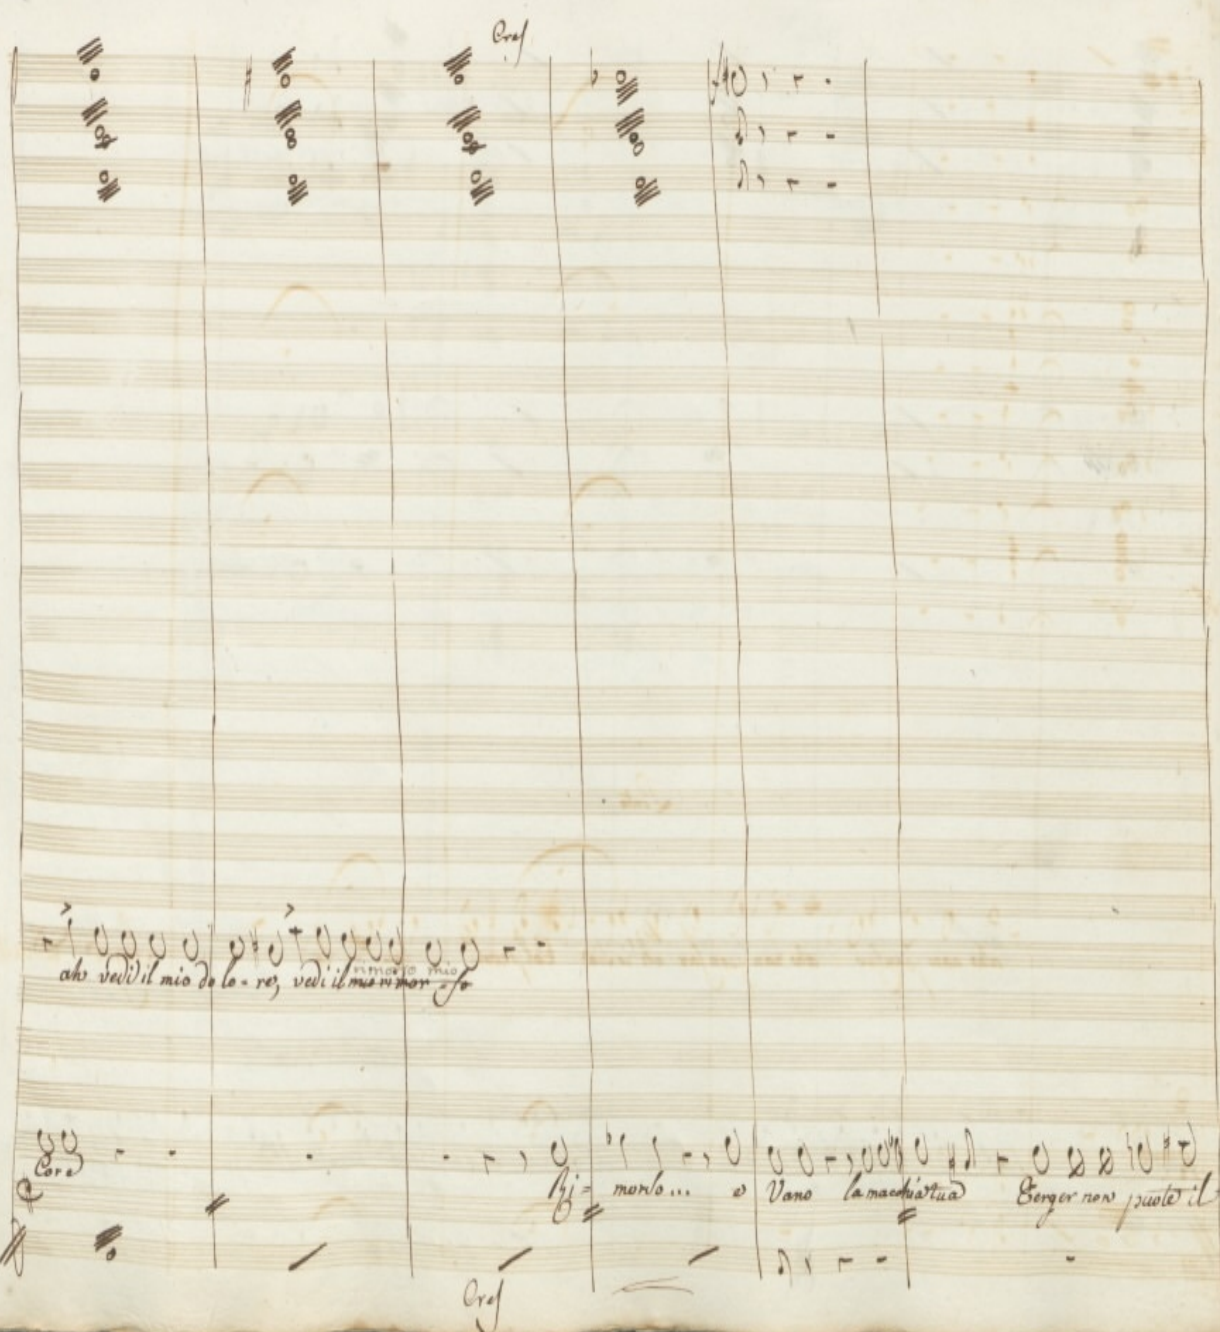 Cres
rimorso mio
ah vedi il mio do lo - re, vedi il mio rimor - so
Core
Ri = morso... e Vano la macchia tua Terger non puote il
Cres